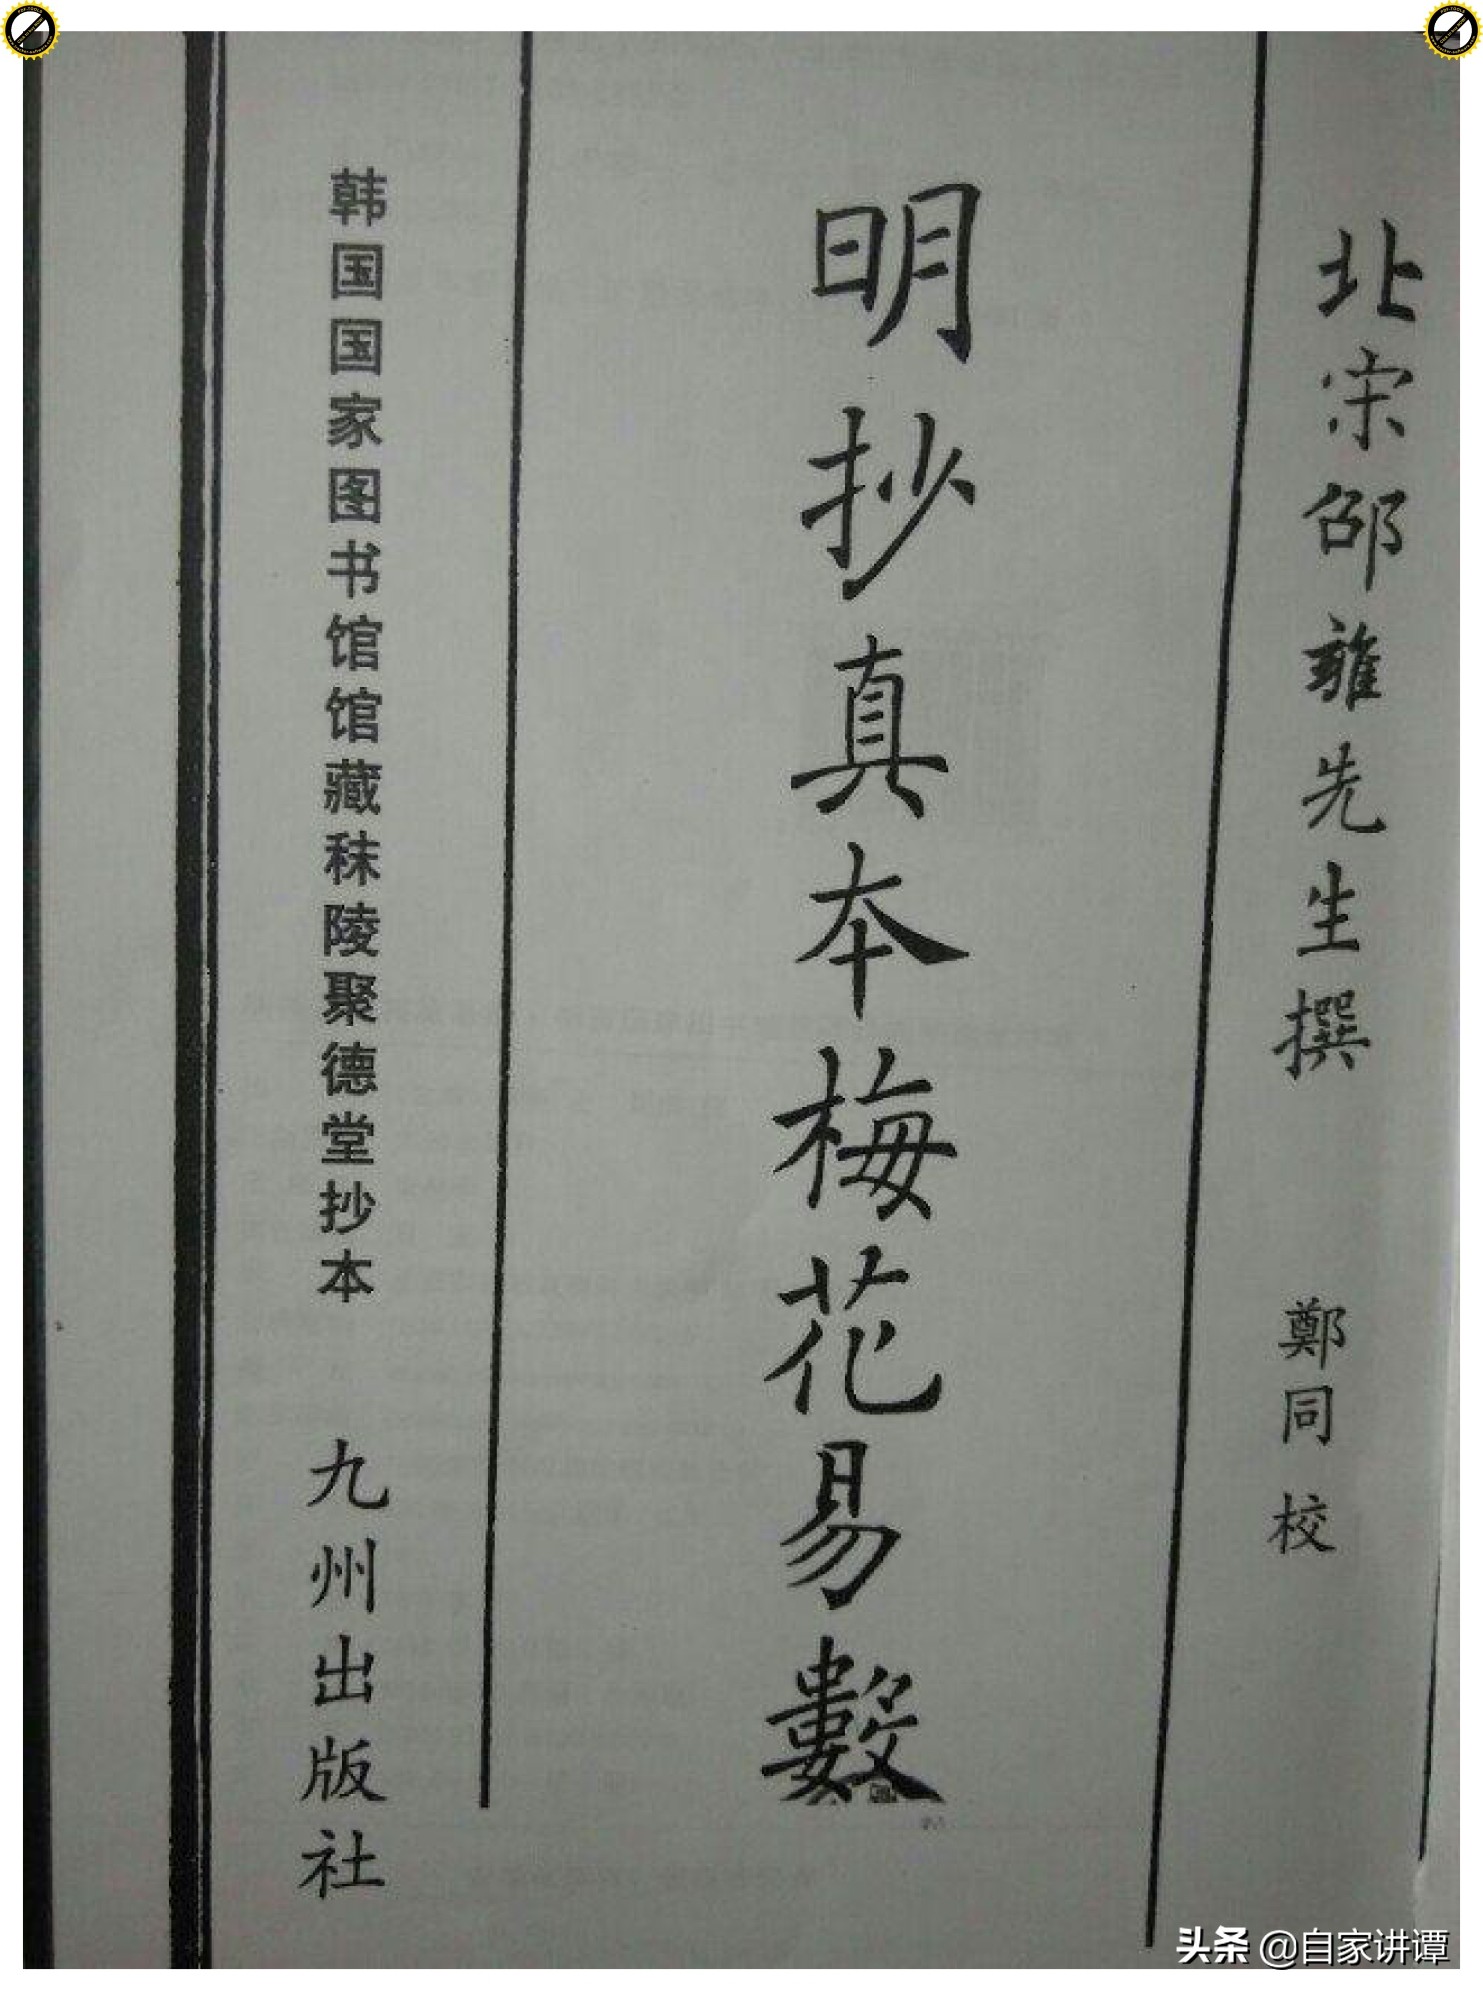 北宋邵雍先生撰 鄭同校
明抄真本梅花易數
韩国国家图书馆馆藏秣陵聚德堂抄本 九州出版社
头条 @自家讲谭